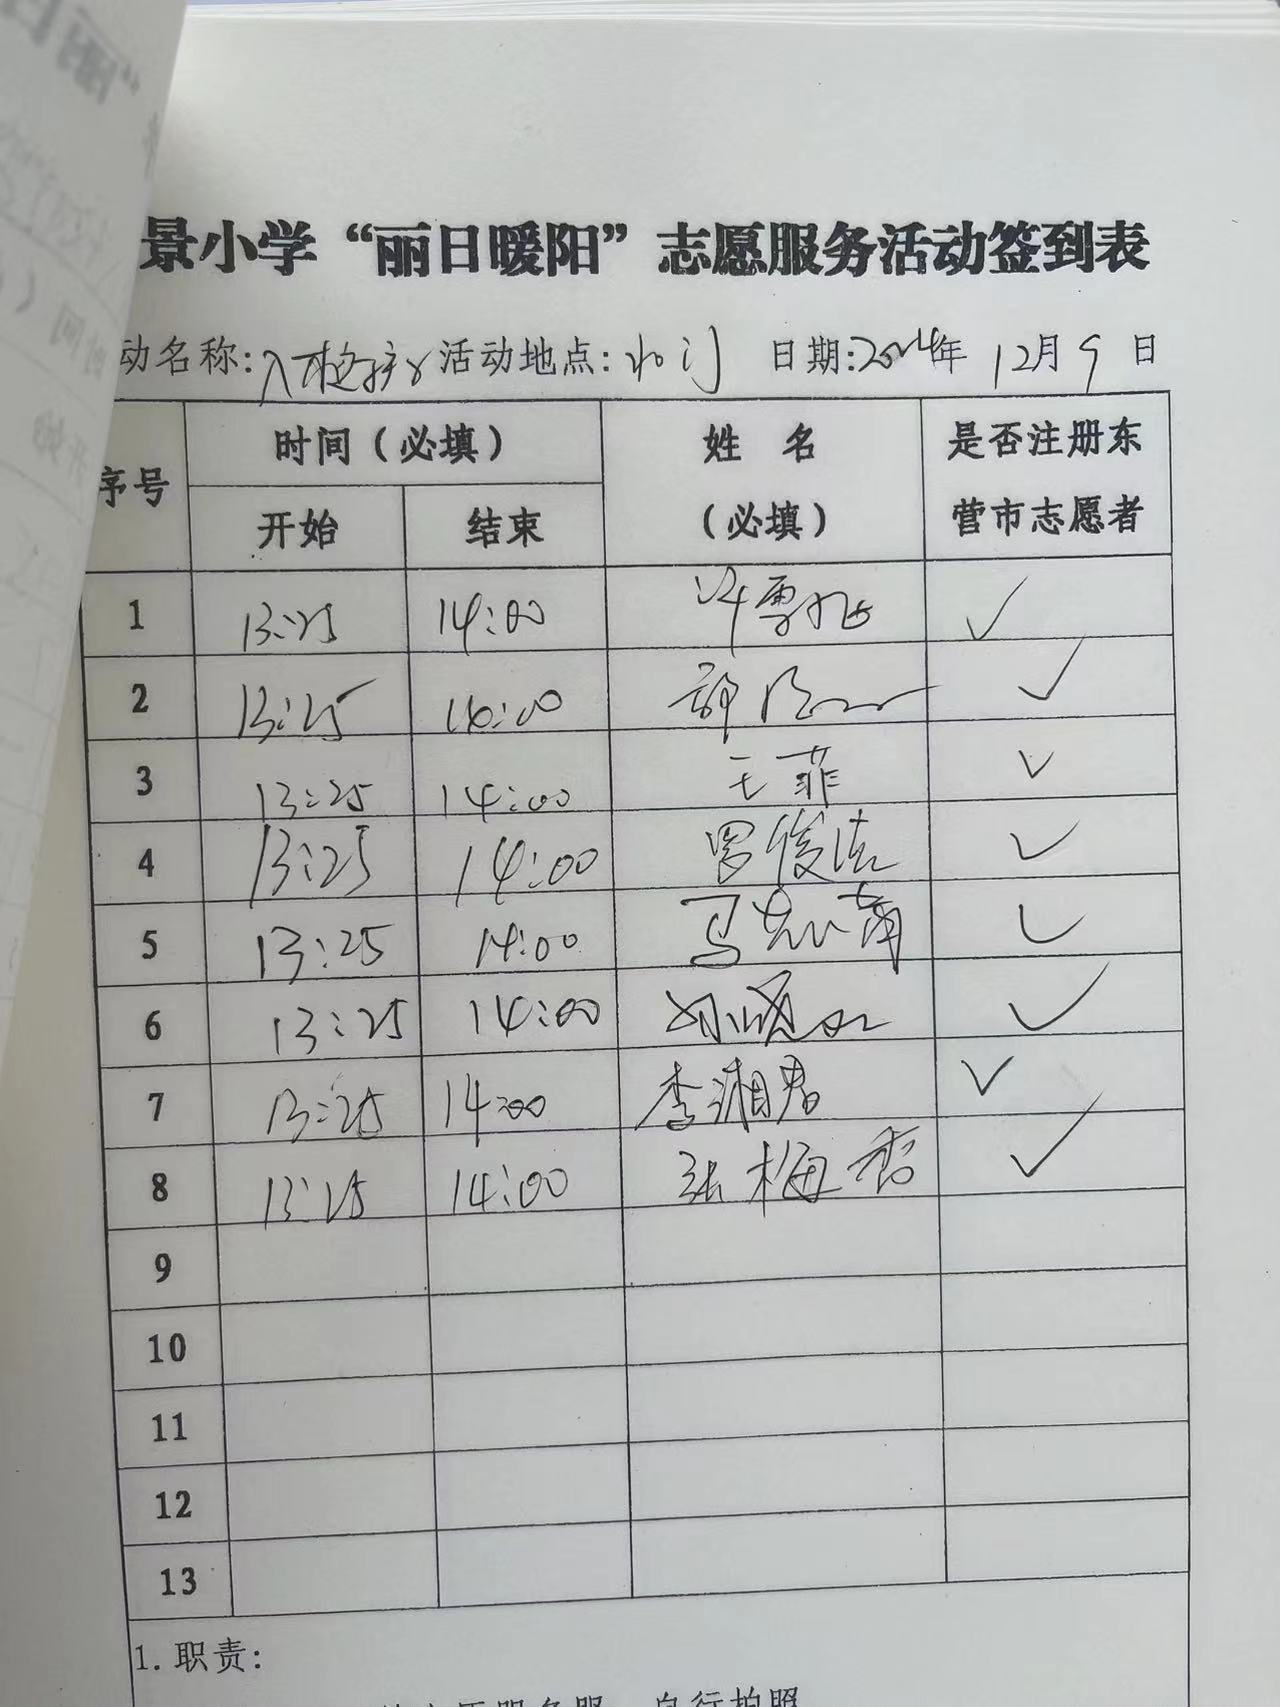 景小学“丽日暖阳”志愿服务活动签到表
动名称:入校护 活动地点: 日期:2024年 12月9日
序号 时间(必填) 姓 名 (必填) 是否注册东营市志愿者
开始 结束
1 13:25 14:00 ✓
2 13:25 14:00 ✓
3 13:25 14:00 王菲 ✓
4 13:25 14:00 罗俊洁 ✓
5 13:25 14:00 马 ✓
6 13:25 14:00 ✓
7 13:25 14:00 李湘君 ✓
8 13:25 14:00 张梅香 ✓
9
10
11
12
13
1.职责:
自行拍照